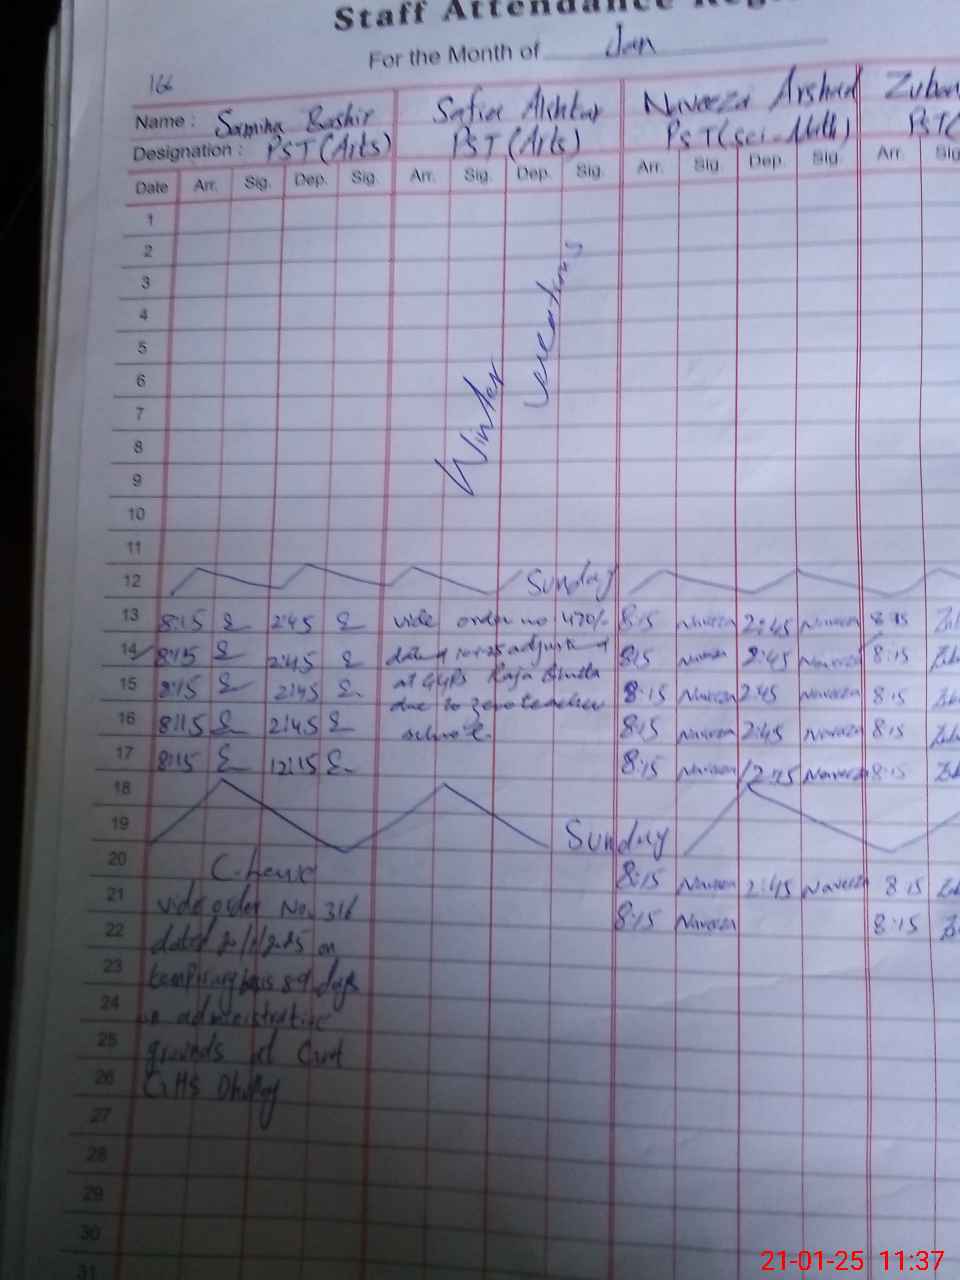 Staff Attendance Reg
For the Month of Jan
166
Name : Samina Bashir Safia Akhtar Naveeza Arshad Zuban
Designation : PST (Arts) PST (Arts) PST (Sci-Math) PST(
Date Arr. Sig. Dep. Sig. Arr. Sig. Dep. Sig. Arr. Sig. Dep. Sig. Arr. Sig
1
2
3
4
5
6
7
8
9
10
11
Winter vacations
12 Sunday
13 8:15 2:45 vide order no 470/- 8:15 Naveeza 2:45 Naveeza 8:15
14 8:15 2:45 dated adjusted 8:15 Naveeza 2:45 Naveeza 8:15
15 8:15 2:45 at GGPS Raja 8:15 Naveeza 2:45 Naveeza 8:15
16 8:15 2:45 due to zero teacher 8:15 Naveeza 2:45 Naveeza 8:15
school.
17 8:15 12:15 8:15 Naveeza 12:15 Naveeza 8:15
18
19 Sunday
20 8:15 Naveeza 2:45 Naveeza 8:15
21 vide order No. 316 8:15 Naveeza 8:15
22 dated on
23 basis 89 days
24 on administrative
25 grounds at Govt
26 GGHS
27
28
29
30
31
21-01-25 11:37